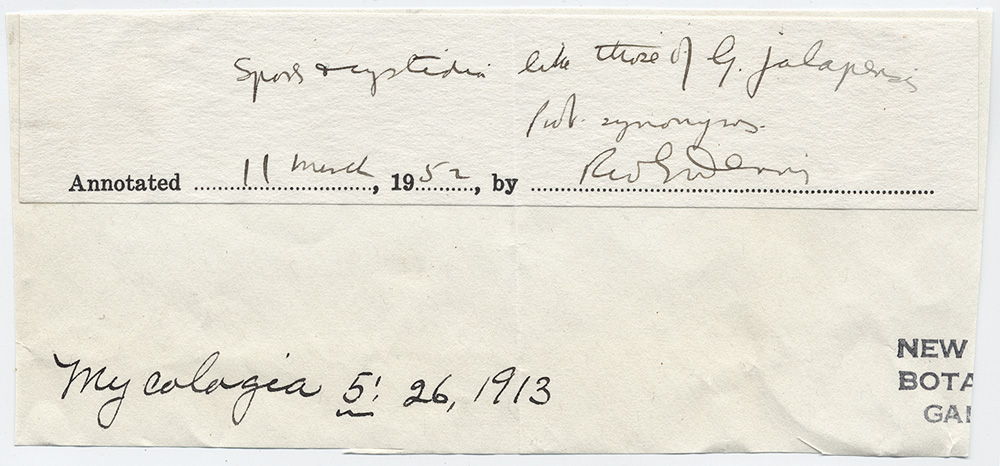 Spores & cystidia like those of G. jalapensis
prob. synonyms.
Annotated 11 March, 1952, by R.W.G. Dennis
Mycologia 5: 26, 1913
NEW
BOTA
GA